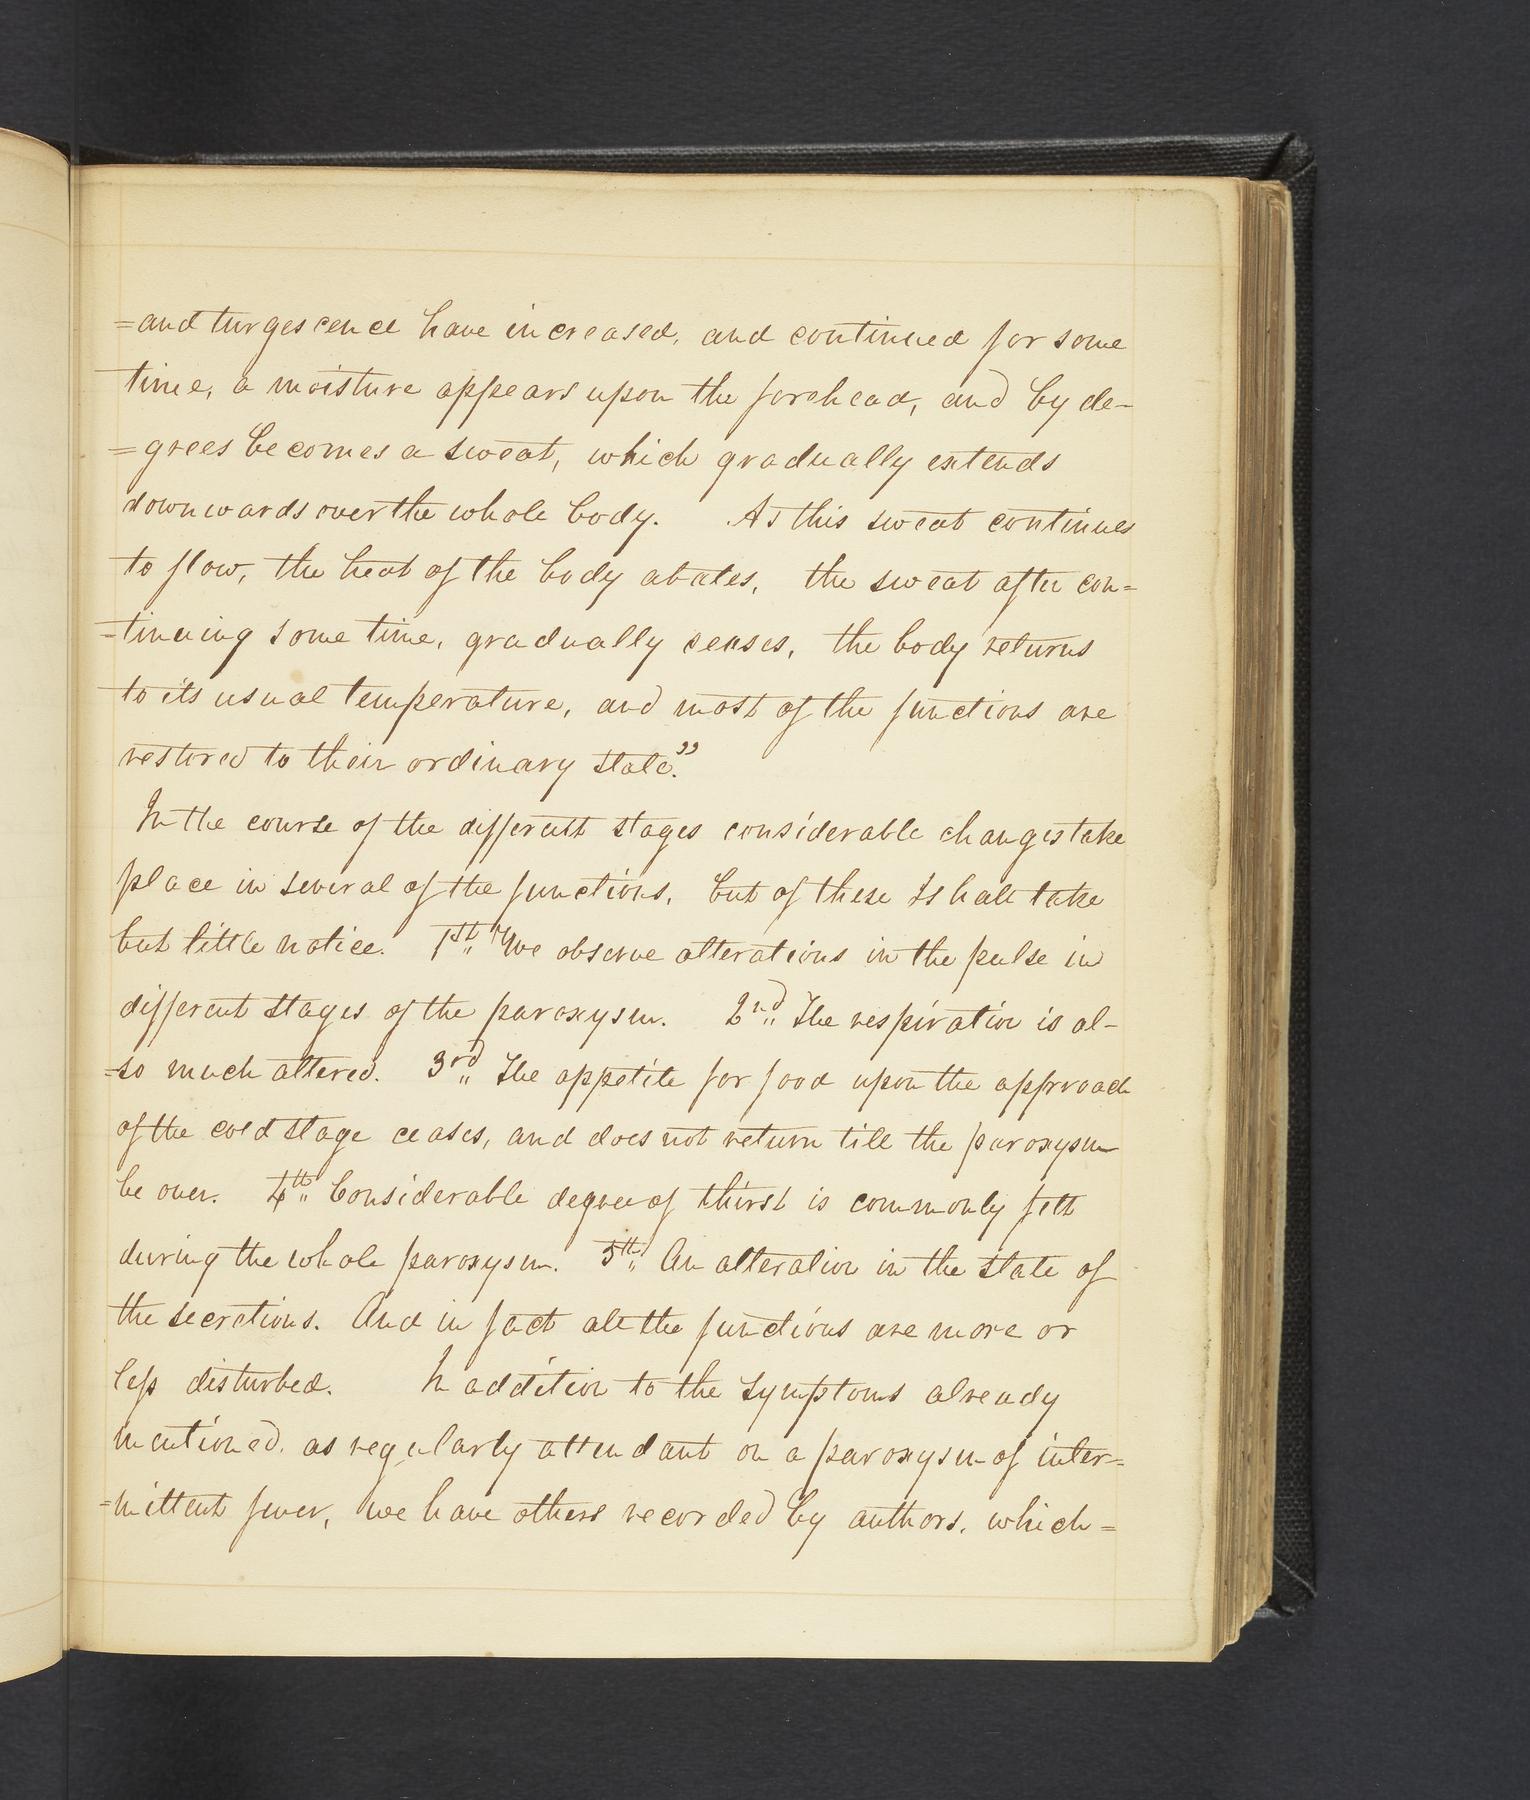 =and turgescence have increased, and continued for some
time, a moisture appears upon the forehead, and by de-
=grees becomes a sweat, which gradually extends
downwards over the whole body. As this sweat continues
to flow, the heat of the body abates, the sweat after con=
=tinuing some time, gradually seases, the body returns
to its usual temperature, and most of the functions are
restored to their ordinary state."
In the course of the different stages considerable changes take
place in several of the functions, but of these I shall take
but little notice. 1st" We observe alterations in the pulse in
different stages of the paroxysm. 2nd" The respiration is al-
=so much altered. 3rd" The appetite for food upon the approach
of the cold stage ceases, and does not return till the paroxysm
be over. 4th" Considerable degree of thirst is commonly felt
during the whole paroxysm. 5th" An alteration in the state of
the secretions. And in fact all the functions are more or
less disturbed. In addition to the symptoms already
mentioned, as regularly attendant on a paroxysm of inter=
=mittent fever, we have others recorded by authors, which=